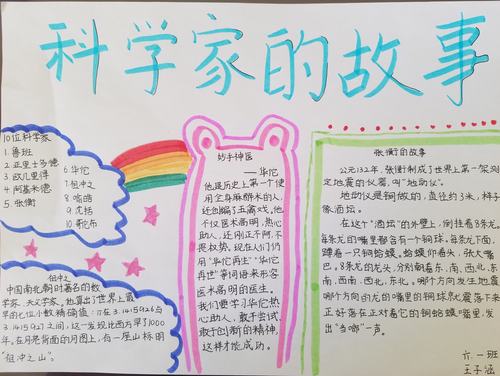 科学家的故事
10位科学家
1.鲁班
2.亚里士多德
3.欧几里得
4.阿基米德
5.张衡
6.华佗
7.祖冲之
8.喻皓
9.沈括
10.哥伦布
祖冲之
中国南北朝时著名的数
学家、天文学家,他算出了世界上最
早的七位小数精确值:π在3.1415926与
3.1415927之间,这一发现比西方早了1000
年,在月亮背面的月图上,有一座山标明
"祖冲之山"。
妙手神医
——华佗
他是历史上第一个使
用全身麻醉术的人,
还创编了五禽戏,他不
仅医术高明,热心
助人,还刚正不阿、不
畏权势。现在人们仍
用"华佗再生""华佗
再世"等词语来形容
医术高明的医生。
我们要学习华佗热
心助人,敢于尝试、
敢于创新的精神,
这样才能成功。
张衡的故事
公元132年,张衡制成了世界上第一架测
定地震的仪器,叫"地动仪"。
地动仪是铜做的,直径约3米,样子
像酒坛。
在这个"酒坛"的外壁上,倒挂着8条龙。
每条龙的嘴里都含有一个铜球。每条龙下面,
蹲着一只铜蛤蟆。蛤蟆仰着头,张大嘴
巴。8条龙的龙头,分别朝着东、南、西、北、东
南、西南、西北、东北。哪个方向发生地震
哪个方向的龙的嘴里的铜球就震落下来
正好落在正对着它的铜蛤蟆嘴里,发
出"当啷"一声。
六.一班
王子涵